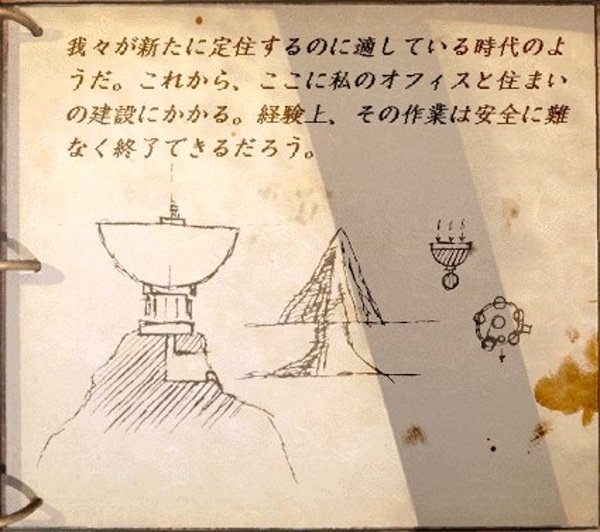 我々が新たに定住するのに適している時代のよ
うだ。これから、ここに私のオフィスと住まい
の建設にかかる。経験上、その作業は安全に難
なく終了できるだろう。